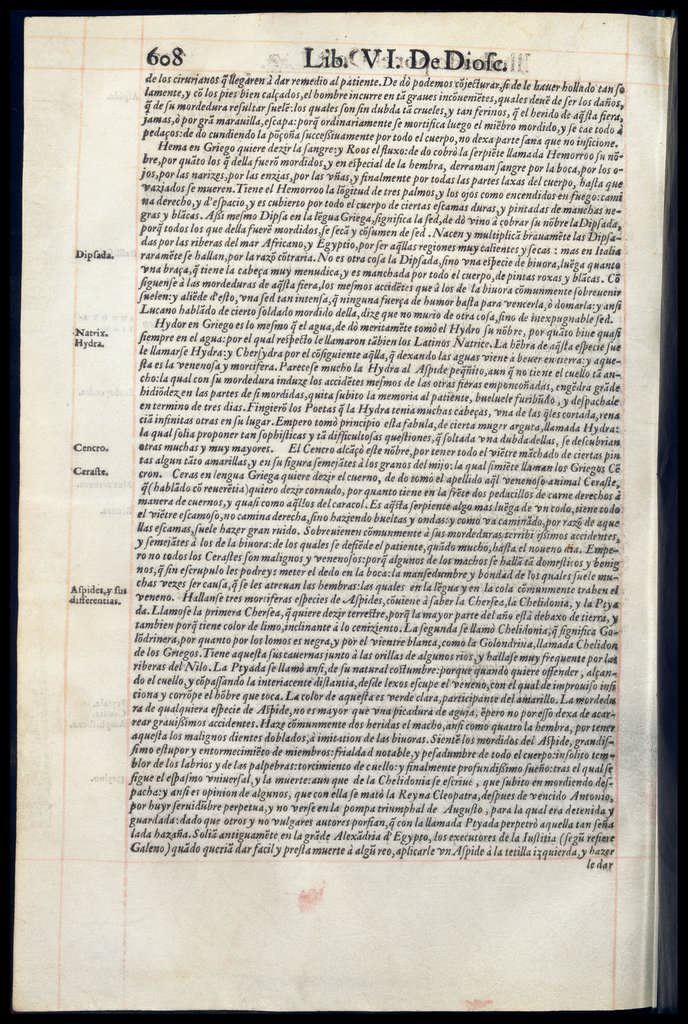 608 Lib. VI. De Diosc.
de los cirurjanos q̃ llegarẽ à dar remedio al patiente. De dò podemos cõjecturar, si de le hauer hollado tan so
lamente, y cõ los pies bien calçados, el hombre incurre en tã graues incõueniẽtes, quales deuẽ de ser los daños,
q̃ de su mordedura resultar suelẽ: los quales son sin dubda tã crueles, y tan ferinos, q̃ el herido de aq̃sta fiera,
jamas, ò por grã marauilla, escapa: porq̃ ordinariamente se mortifica luego el miẽbro mordido, y se cae todo à
pedaços: de do cundiendo la põçoña successiuamente por todo el cuerpo, no dexa parte sana que no inficione.
Hema en Griego quiere dezir la sangre: y Roos el fluxo: de do cobrò la serpiẽte llamada Hemorroo su nõ-
bre, por quãto los q̃ della fuerõ mordidos, y en especial de la hembra, derraman sangre por la boca, por los o-
jos, por las narizes, por las enzias, por las vñas, y finalmente por todas las partes laxas del cuerpo, hasta que
vaziados se mueren. Tiene el Hemorroo la lõgitud de tres palmos, y los ojos como encendidos en fuego: cami
na derecho, y d'espacio, y es cubierto por todo el cuerpo de ciertas escamas duras, y pintadas de manchas ne-
gras y blãcas. Assi mesmo Dipsa en la lẽgua Griega, significa la sed, de dò vino à cobrar su nõbre la Dipsada,
porq̃ todos los que della fuerẽ mordidos, se secã y cõsumen de sed. Nacen y multiplicã brauamẽte las Dipsa-
Dipsada.
das por las riberas del mar Africano, y Egyptio, por ser aq̃llas regiones muy calientes y secas: mas en Italia
raramẽte se hallan, por la razõ cõtraria. No es otra cosa la Dipsada, sino vna especie de biuora, luẽga quanto
vna braça, q̃ tiene la cabeça muy menudica, y es manchada por todo el cuerpo, de pintas roxas y blãcas. Cõ
siguense à las mordeduras de aq̃sta fiera, los mesmos accidẽtes que à los de la biuora cõmunmente sobreuenir
suelen: y aliẽde d'esto, vna sed tan intensa, q̃ ninguna fuerça de humor basta para vencerla, ò domarla: y ansi
Lucano hablãdo de cierto soldado mordido della, dize que no murio de otra cosa, sino de inexpugnable sed.
Hydor en Griego es lo mesmo q̃ el agua, de dò meritamẽte tomò el Hydro su nõbre, por quãto biue quasi
Natrix.
siempre en el agua: por el qual respecto le llamaron tãbien los Latinos Natrice. La hẽbra de aq̃sta especie sue
Hydra.
le llamarse Hydra: y Chersydra por el cõsiguiente aq̃lla, q̃ dexando las aguas viene à beuer en tierra: y aque-
sta es la venenosa y mortifera. Parecese mucho la Hydra al Aspide peq̃ñito, aun q̃ no tiene el cuello tã an-
cho: la qual con su mordedura induze los accidẽtes mesmos de las otras fieras emponçoñadas, engẽdra grãde
hidiõdez en las partes de si mordidas, quita subito la memoria al patiente, bueluele furibũdo, y despachale
en termino de tres dias. Fingierõ los Poetas q̃ la Hydra tenia muchas cabeças, vna de las q̃les cortada, rena
cià infinitas otras en su lugar. Empero tomò principio esta fabula, de cierta muger arguta, llamada Hydra:
la qual solia proponer tan sophisticas y tã difficultosas questiones, q̃ soltada vna dubda dellas, se descubrian
Cencro.
otras muchas y muy mayores. El Cencro alcãçò este nõbre, por tener todo el viẽtre mãchado de ciertas pin
tas algun tãto amarillas, y en su figura semejãtes à los granos del mijo: la qual simiẽte llaman los Griegos Cẽ
Ceraste.
cron. Ceras en lengua Griega quiere dezir el cuerno, de do tomò el apellido aq̃l venenoso animal Ceraste,
q̃ (hablãdo cõ reuerẽtia) quiero dezir cornudo, por quanto tiene en la frẽte dos pedacillos de carne derechos à
manera de cuernos, y quasi como aq̃llos del caracol. Es aq̃sta serpiente algo mas luẽga de vn codo, tiene todo
el viẽtre escamoso, no camina derecha, sino haziendo bueltas y ondas: y como va caminãdo, por razõ de aque
llas escamas, suele hazer gran ruido. Sobreuienen cõmunmente à sus mordeduras terribilissimos accidentes,
y semejãtes à los de la biuora: de los quales se defiẽde el patiente, quãdo mucho, hasta el noueno dia. Empe-
ro no todos los Cerastes son malignos y venenosos: porq̃ algunos de los machos se hallã tã domesticos y benig
nos, q̃ sin escrupulo les podreys meter el dedo en la boca: la mansedumbre y bondad de los quales suele mu-
chas vezes ser causa, q̃ se les atreuan las hembras: las quales en la lẽgua y en la cola cõmunmente trahen el
Aspides, y sus
veneno. Hallanse tres mortiferas especies de Aspides, cõuiene à saber la Chersea, la Chelidonia, y la Ptya
differentias.
da. Llamose la primera Chersea, q̃ quiere dezir terrestre, porq̃ la mayor parte del año està debaxo de tierra, y
tambien porq̃ tiene color de limo, inclinante à lo ceniziento. La segunda se llamò Chelidonia, q̃ significa Go-
lõdrinera, por quanto por los lomos es negra, y por el vientre blanca, como la Golondrina, llamada Chelidon
de los Griegos. Tiene aquesta sus cauernas junto à las orillas de algunos rios, y hallase muy frequente por las
riberas del Nilo. La Ptyada se llamò ansi, de su natural costumbre: porque quando quiere offender, alçan-
do el cuello, y cõpassando la interiacente distantia, desde lexos escupe el veneno, con el qual de improuiso infi
ciona y corrõpe el hõbre que toca. La color de aquesta es verde clara, participante del amarillo. La mordedu
ra de qualquiera especie de Aspide, no es mayor que vna picadura de aguja, ẽpero no por esso dexa de acar-
rear grauissimos accidentes. Haze cõmunmente dos heridas el macho, ansi como quatro la hembra, por tener
aquesta los malignos dientes doblados, à imitation de las biuoras. Siente los mordidos del Aspide, grandis-
simo estupor y entormecimiẽto de miembros: frialdad notable, y pesadumbre de todo el cuerpo: insolito tem-
blor de los labrios y de las palpebras: torcimiento de cuello: y finalmente profundissimo sueño: tras el qual se
sigue el espasmo vniuersal, y la muerte: aun que de la Chelidonia se escriue, que subito en mordiendo des-
pacha: y ansi es opinion de algunos, que con ella se matò la Reyna Cleopatra, despues de vencido Antonio,
por huyr seruidũbre perpetua, y no verse en la pompa triumphal de Augusto, para la qual era detenida y
guardada: dado que otros y no vulgares autores porfian, q̃ con la llamada Ptyada perpetrò aquella tan seña
lada hazaña. Soliã antiguamẽte en la grãde Alexãdria d'Egypto, los executores de la Iustitia (segũ refiere
Galeno) quãdo queriã dar facil y presta muerte à algũ reo, aplicarle vn Aspide à la tetilla izquierda, y hazer
le dar